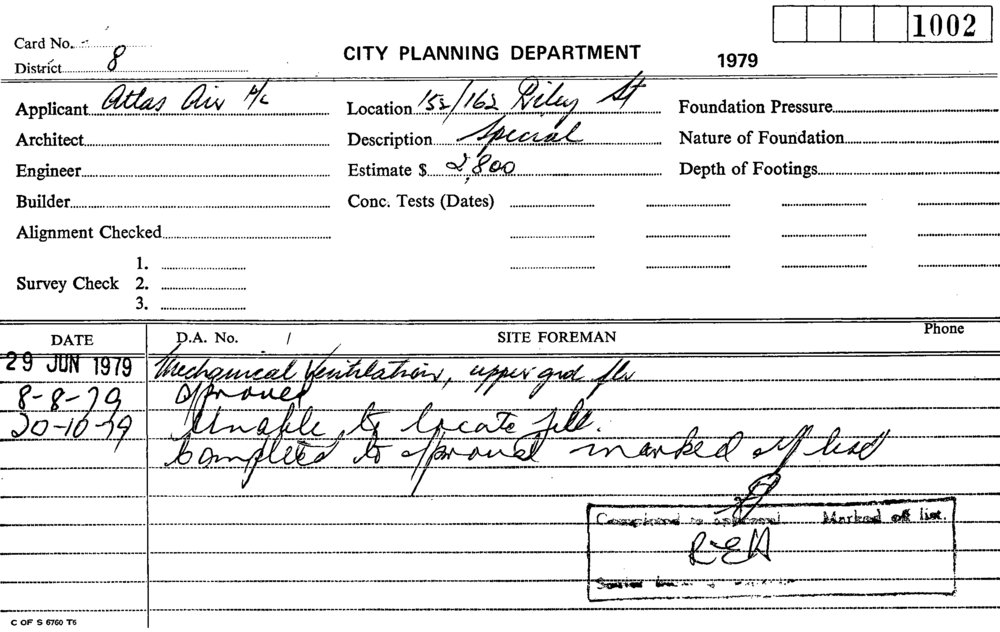 1002
Card No.
CITY PLANNING DEPARTMENT 1979
District 8
Applicant Atlas Air A/c Location 152/162 Riley St Foundation Pressure
Architect Description Special Nature of Foundation
Engineer Estimate $ 2,800 Depth of Footings
Builder Conc. Tests (Dates)
Alignment Checked
1.
Survey Check 2.
3.
DATE D.A. No. / SITE FOREMAN Phone
29 JUN 1979 Mechanical Ventilation, upper grd flr
8-8-79 approved
20-10-79 Unable to locate file.
Completed to approval marked off list
Completed to approval Marked off list.
REH
C OF S 6760 T6